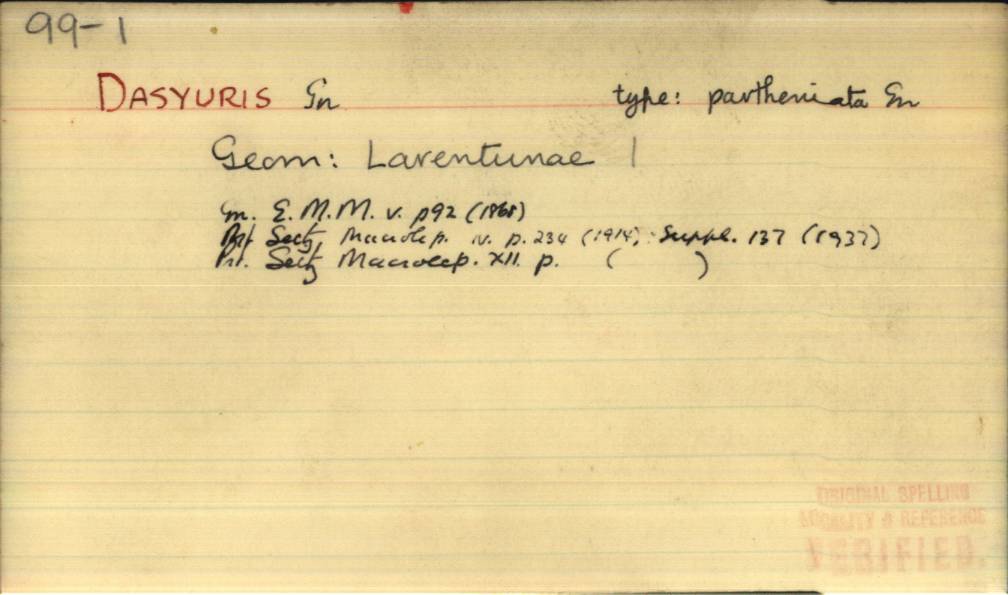 99-1
DASYURIS Gn type: partheniata Gn
Geom: Larentiinae 1
Gn. E.M.M. v. p92 (1868)
Prt Seitz Macrolep. iv. p. 234 (1914): Suppl. 137 (1937)
Prt. Seitz Macrolep. XII. p. ( )
ORIGINAL SPELLING
LOCALITY & REFERENCE
VERIFIED.